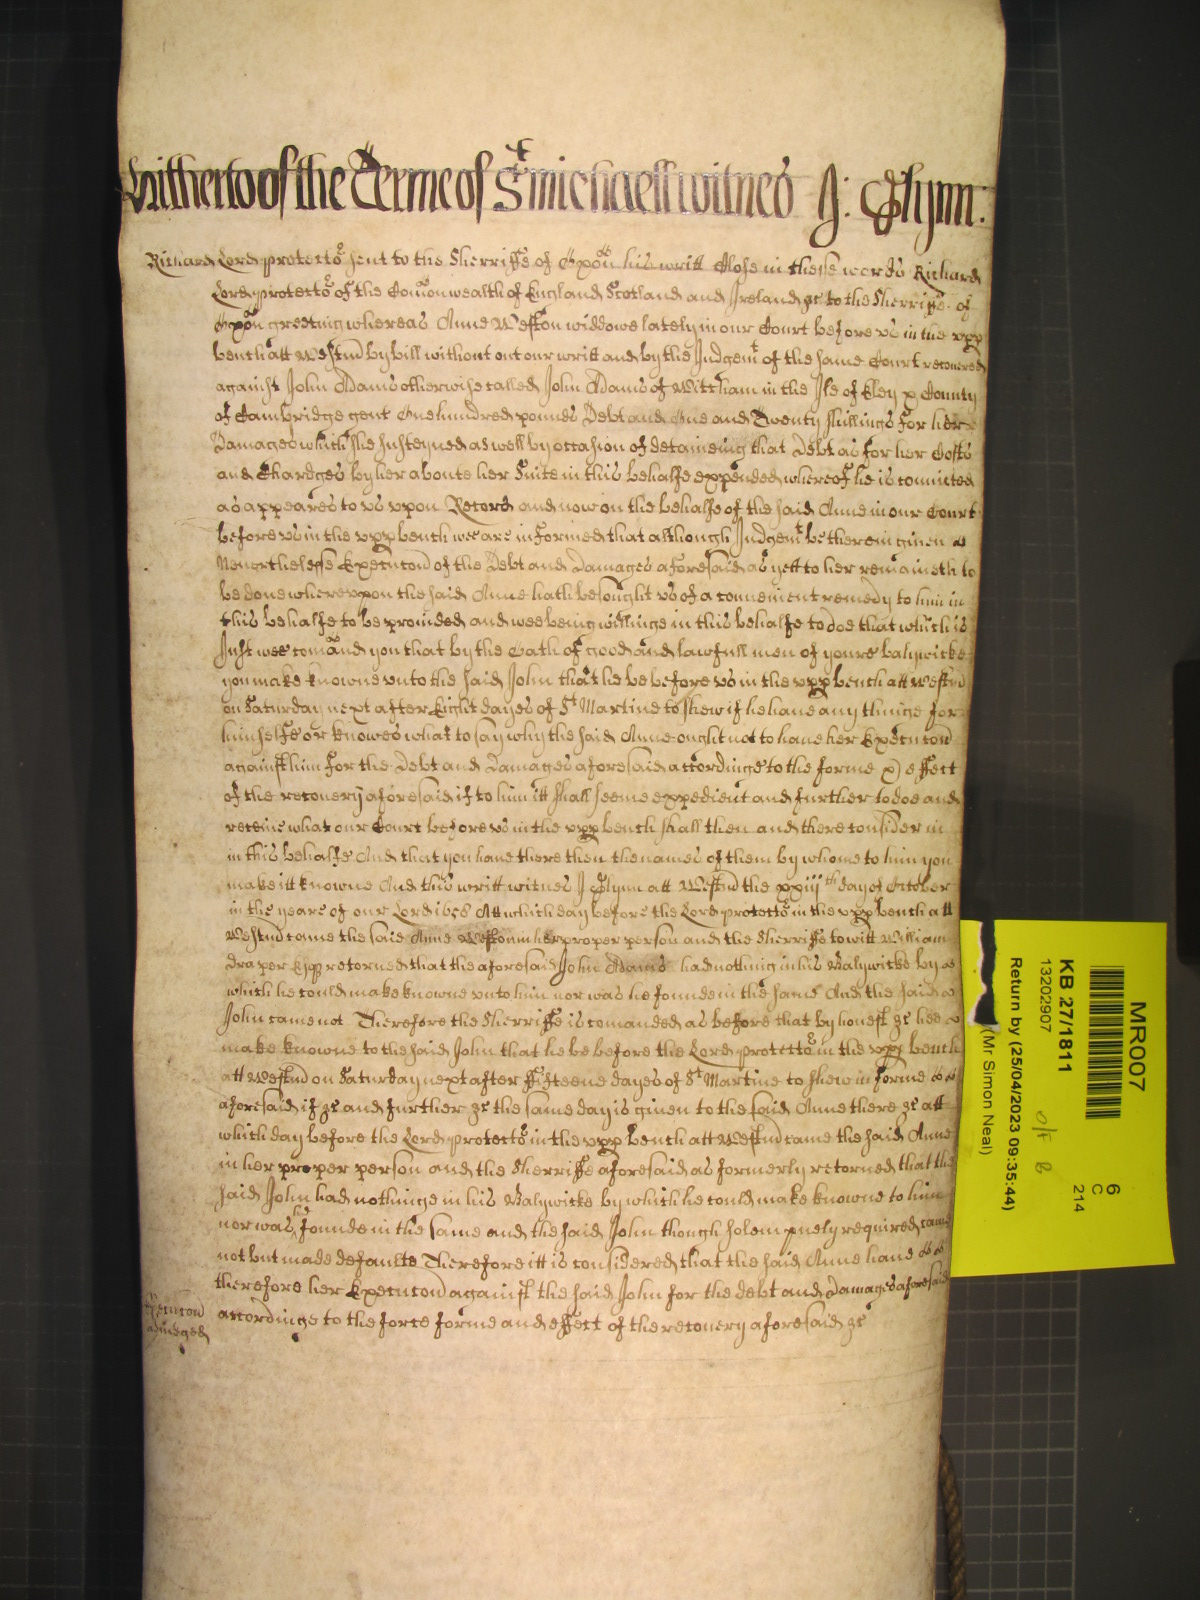 Hitherto of the Terme of St Michaell witnes J: Glynn:
Richard Lord protector sent to the Sherriffe of Oxon his writt Close in these words Richard
Lord protector of the Comonwealth of England Scotland and Ireland &c to the Sherriffe of
Oxon greeting whereas Anne Weston widdowe lately in our Court before us in the upp
bench att Westm by bill without out our writt and by the Judgemt of the same Court recovered
against John Adams otherwise called John Adams of Witcham in the Isle of Eley County
of Cambridge gent One hundred pounds Debt and One and Twenty shillings for her
Damages which she susteyned as well by occasion of deteineing that Debt as for her Costs
and Chardges by her aboute her Suite in this behalfe expended whereof he is convicted
as appeares to us upon Record and now on the behalfe of the said Anne in our Court
before us in the upp bench wee are informed that although Judgemt be therein given
Neverthelesse Execucon of the Debt and Damages aforesaid as yett to her remaineth to
be done whereupon the said Anne hath besought us of a convenient remedy to him in
this behalfe to be provided and wee being willinge in this behalfe to doe that which is
Just wee comand you that by the Oath of good and lawfull men of youre balywicke
you make knowne unto the said John that he be before us in the upp bench att Westm
on Saturday next after Eight dayes of St Martine to shew if he have any thinge for
himselfe or knowes what to say why the said Anne ought not to have her Execucon
against him for the Debt and Damages aforesaid accordinge to the forme & effect
of the recovery aforesaid if to him itt shall seeme expedient and further to doe and
receive what our Court before us in the upp bench shall then and there consider in
in this behalfe And that you have there then the names of them by whome to him you
make itt knowne And this writt witnes J Glynn att Westm the xxiij th day of October
in the yeare of our Lord 1658 Att which day before the Lord protector in the upp bench att
Westm came the said Anne Weston in her proper person and the Sherriffe to witt William
Draper Esqr returned that the aforesaid John Adams had nothing in his Balywicke by
which he could make knowne unto him nor was he founde in the same And the said
John came not Therefore the Sherriffe is comanded as before that by honest &c hee
make knowne to the said John that he be before the Lord protector in the upp bench
att Westm on Saturday next after ffifteene dayes of St Martine to shew in forme
aforesaid if &c and further &c the same day is given to the said Anne there &c att
which day before the Lord protector in the upp bench att Westm came the said Anne
in her proper person and the Sherriffe aforesaid as formerly retorned that the
said John had nothinge in his Balywicke by which he could make knowne to him
nor was he founde in the same and the said John though solempnely required came
not but made defaulte Therefore itt is considered that the said Anne have
therefore her Execucon against the said John for the debt and Damages aforesaid
Execucon
adjudged
accordinge to the force forme and effect of the recovery aforesaid &c
MR007
KB 27/1811
13202907
Return by (25/04/2023 09:35:44)
(Mr Simon Neal)
6
C
214